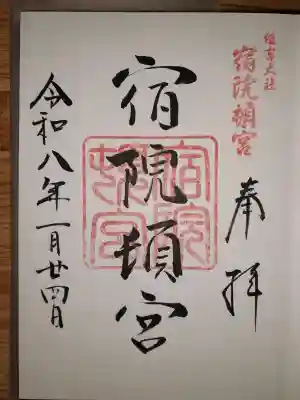 住吉大社
宿院頓宮
奉拝
宿院頓宮
宿院
頓宮
令和八年一月廿四日